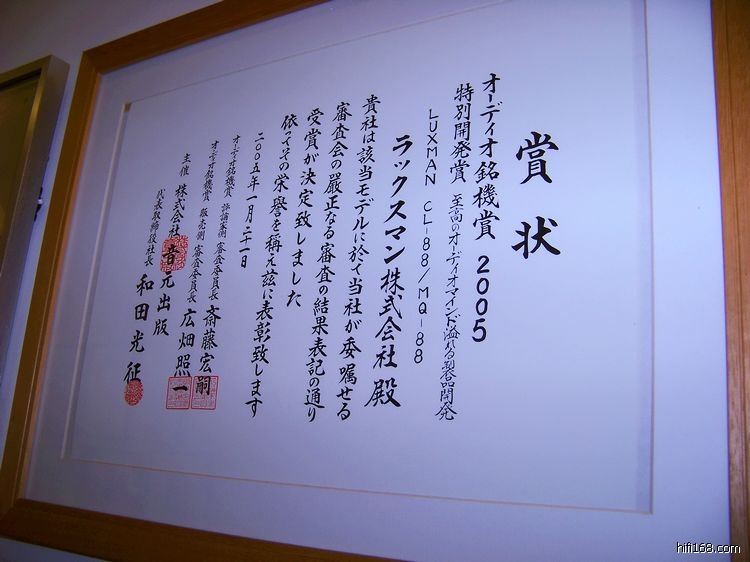 賞状
オーディオ銘機賞 2005
特別開発賞 至高のオーディオマインド溢れる製品開発
LUXMAN CL-88/MQ-88
ラックスマン株式会社 殿
貴社は該当モデルに於て当社が委嘱せる
審査会の厳正なる審査の結果表記の通り
受賞が決定致しました
依つてその栄誉を称え茲に表彰致します
二〇〇五年一月二十一日
オーディオ銘機賞 評論家側 審査委員長 斎藤宏嗣
オーディオ銘機賞 販売側 審査委員長 広畑照一
主催 株式会社音元出版
代表取締役社長 和田光征
hifi168.com